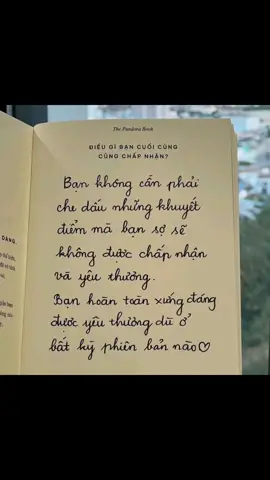 The Pandora Book
ĐIỀU GÌ BẠN CUỐI CÙNG
CŨNG CHẤP NHẬN?
Bạn không cần phải
che dấu những khuyết
điểm mà bạn sợ sẽ
không được chấp nhận
và yêu thương.
Bạn hoàn toàn xứng đáng
được yêu thương dù ở
bất kỳ phiên bản nào♡